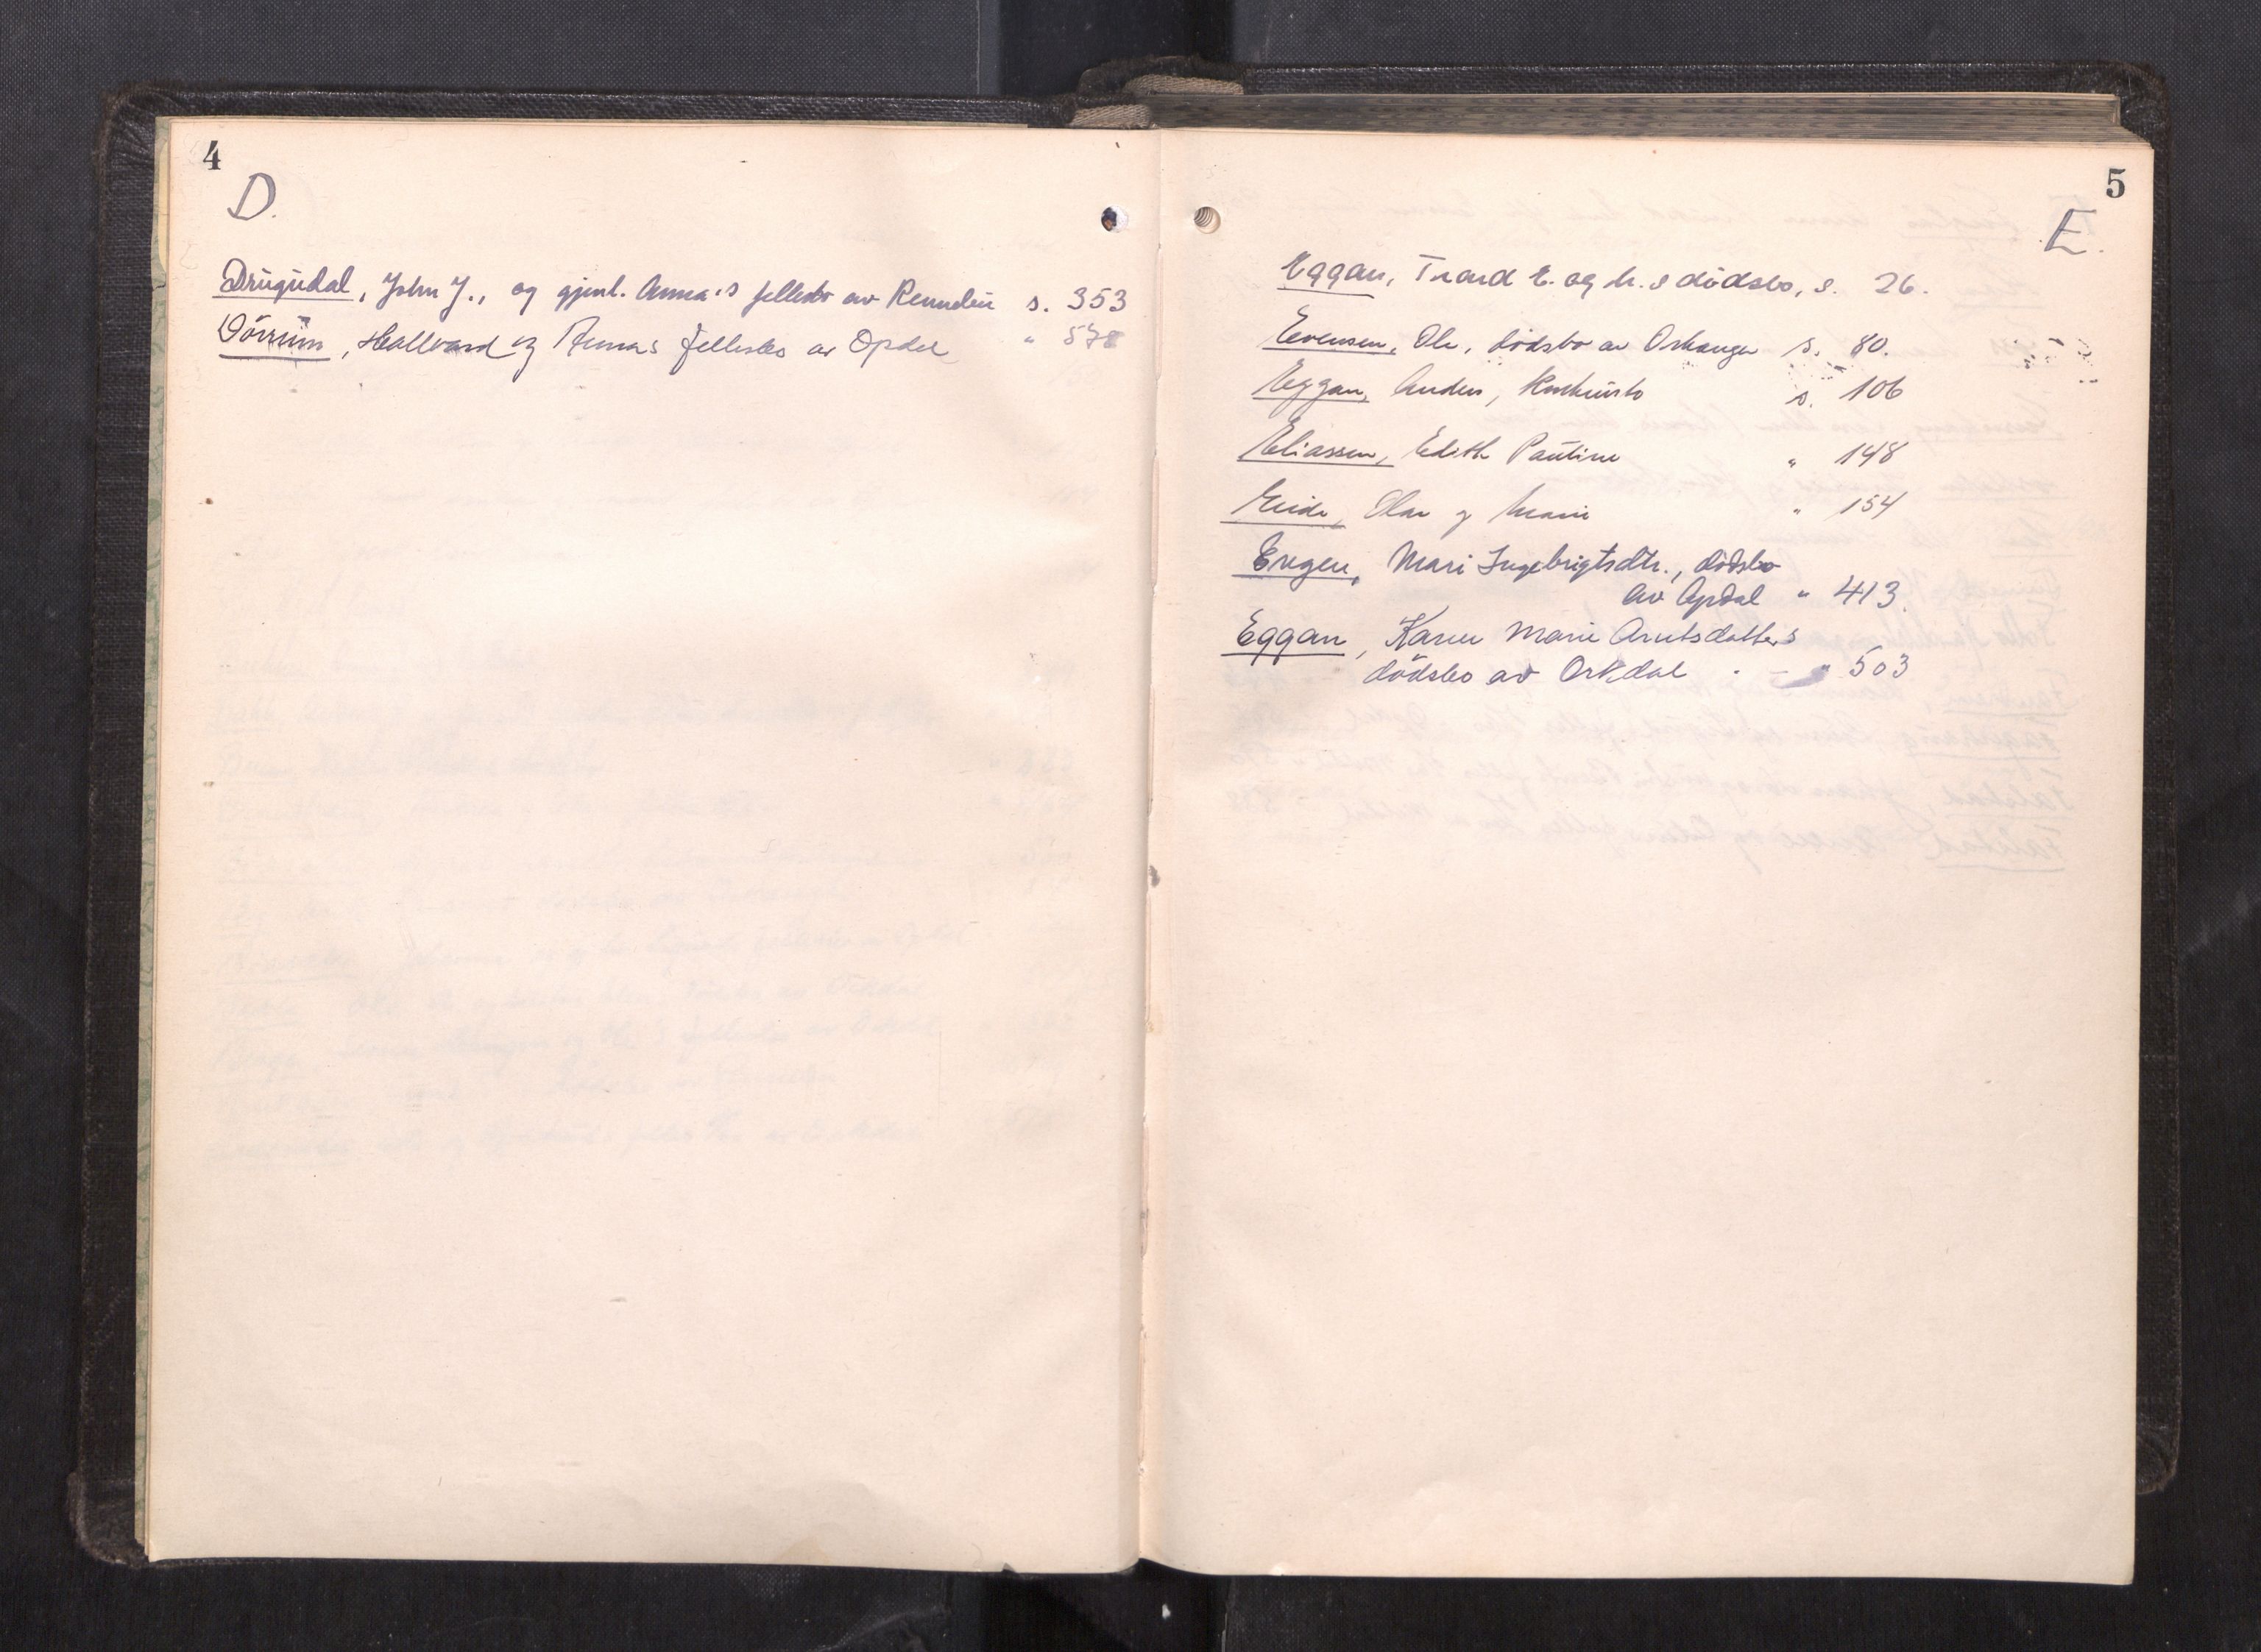 4
D.
Drugudal, John J., og gjenl. Anna's fellesbo av Rennebu s. 353
Dörrum, Hallvard og Annas fellesbo av Opdal " 578
5
E.
Eggan, Trond E. og h.s dödsbo, s. 26.
Evensen, Ole, dödsbo av Orkanger s. 80.
Eggan, Anders, Konkursbo s. 106
Eliassen, Edith Pauline " 148
Eide, Olav og Marie " 154
Engen, Mari Ingebrigtsdtr., dödsbo
av Opdal " 413
Eggan, Karen Marie Arntsdatters
dödsbo av Orkdal . - " 503